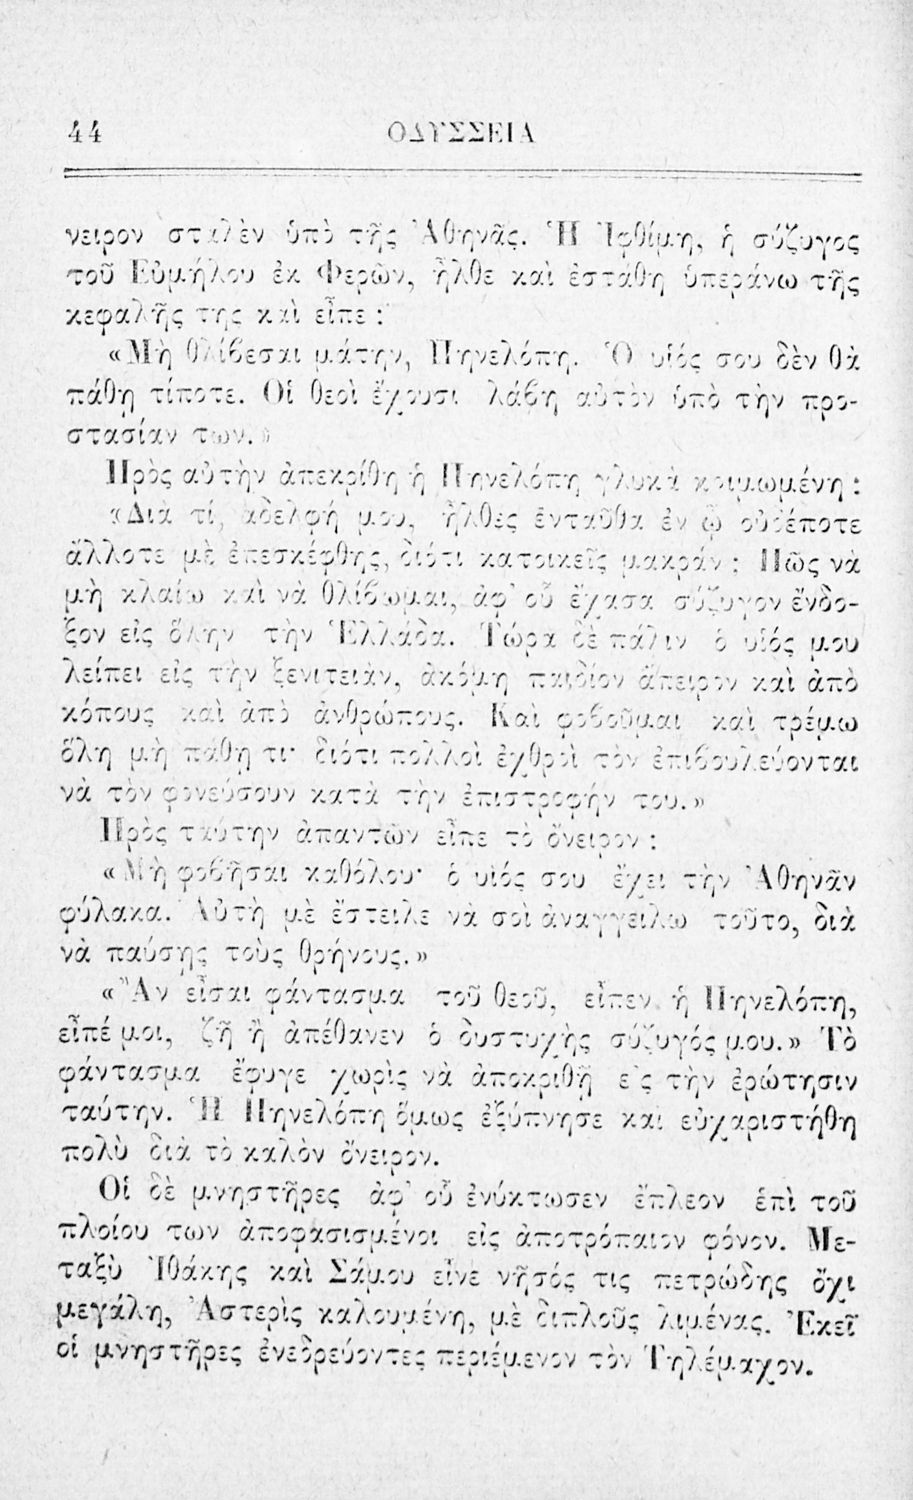 44 ΟΔΥΣΣΕΙΑ
νειρον σταλὲν ὑπὸ τῆς Ἀθηνᾶς. Ἡ Ἰφθίμη, ἡ σύζυγος
τοῦ Εὐμήλου ἐκ Φερῶν, ἦλθε καὶ ἐστάθη ὑπεράνω τῆς
κεφαλῆς της καὶ εἶπε :
«Μὴ θλίβεσαι μάτην, Πηνελόπη. Ὁ υἱός σου δὲν θὰ
πάθῃ τίποτε. Οἱ θεοὶ ἔχουσι λάβῃ αὐτὸν ὑπὸ τὴν προ-
στασίαν των.»
Πρὸς αὐτὴν ἀπεκρίθη ἡ Πηνελόπη γλυκὰ κοιμωμένη :
«Διὰ τί, ἀδελφή μου, ἦλθες ἐνταῦθα ἐν ᾧ οὐδέποτε
ἄλλοτε μὲ ἐπεσκέφθης, διότι κατοικεῖς μακράν ; Πῶς νὰ
μὴ κλαίω καὶ νὰ θλίβωμαι, ἀφ' οὗ ἔχασα σύζυγον ἔνδο-
ξον εἰς ὅλην τὴν Ἑλλάδα. Τώρα δὲ πάλιν ὁ υἱός μου
λείπει εἰς τὴν ξενιτειὰν, ἀκόμη παιδίον ἄπειρον καὶ ἀπὸ
κόπους καὶ ἀπὸ ἀνθρώπους. Καὶ φοβοῦμαι καὶ τρέμω
ὅλη μὴ πάθῃ τι· διότι πολλοὶ ἐχθροὶ τὸν ἐπιβουλεύονται
νὰ τὸν φονεύσουν κατὰ τὴν ἐπιστροφήν του.»
Πρὸς ταύτην ἀπαντῶν εἶπε τὸ ὄνειρον :
«Μὴ φοβῆσαι καθόλου· ὁ υἱός σου ἔχει τὴν Ἀθηνᾶν
φύλακα. Αὐτὴ μὲ ἔστειλε νὰ σοὶ ἀναγγείλω τοῦτο, διὰ
νὰ παύσῃς τοὺς θρήνους.»
«Ἂν εἶσαι φάντασμα τοῦ θεοῦ, εἶπεν ἡ Πηνελόπη,
εἰπέ μοι, ζῇ ἢ ἀπέθανεν ὁ δυστυχὴς σύζυγός μου.» Τὸ
φάντασμα ἔφυγε χωρὶς νὰ ἀποκριθῇ εἰς τὴν ἐρώτησιν
ταύτην. Ἡ Πηνελόπη ὅμως ἐξύπνησε καὶ εὐχαριστήθη
πολὺ διὰ τὸ καλὸν ὄνειρον.
Οἱ δὲ μνηστῆρες ἀφ' οὗ ἐνύκτωσεν ἔπλεον ἐπὶ τοῦ
πλοίου των ἀποφασισμένοι εἰς ἀποτρόπαιον φόνον. Με-
ταξὺ Ἰθάκης καὶ Σάμου εἶνε νῆσός τις πετρώδης ὄχι
μεγάλη, Ἀστερὶς καλουμένη, μὲ διπλοῦς λιμένας. Ἐκεῖ
οἱ μνηστῆρες ἐνεδρεύοντες περιέμενον τὸν Τηλέμαχον.